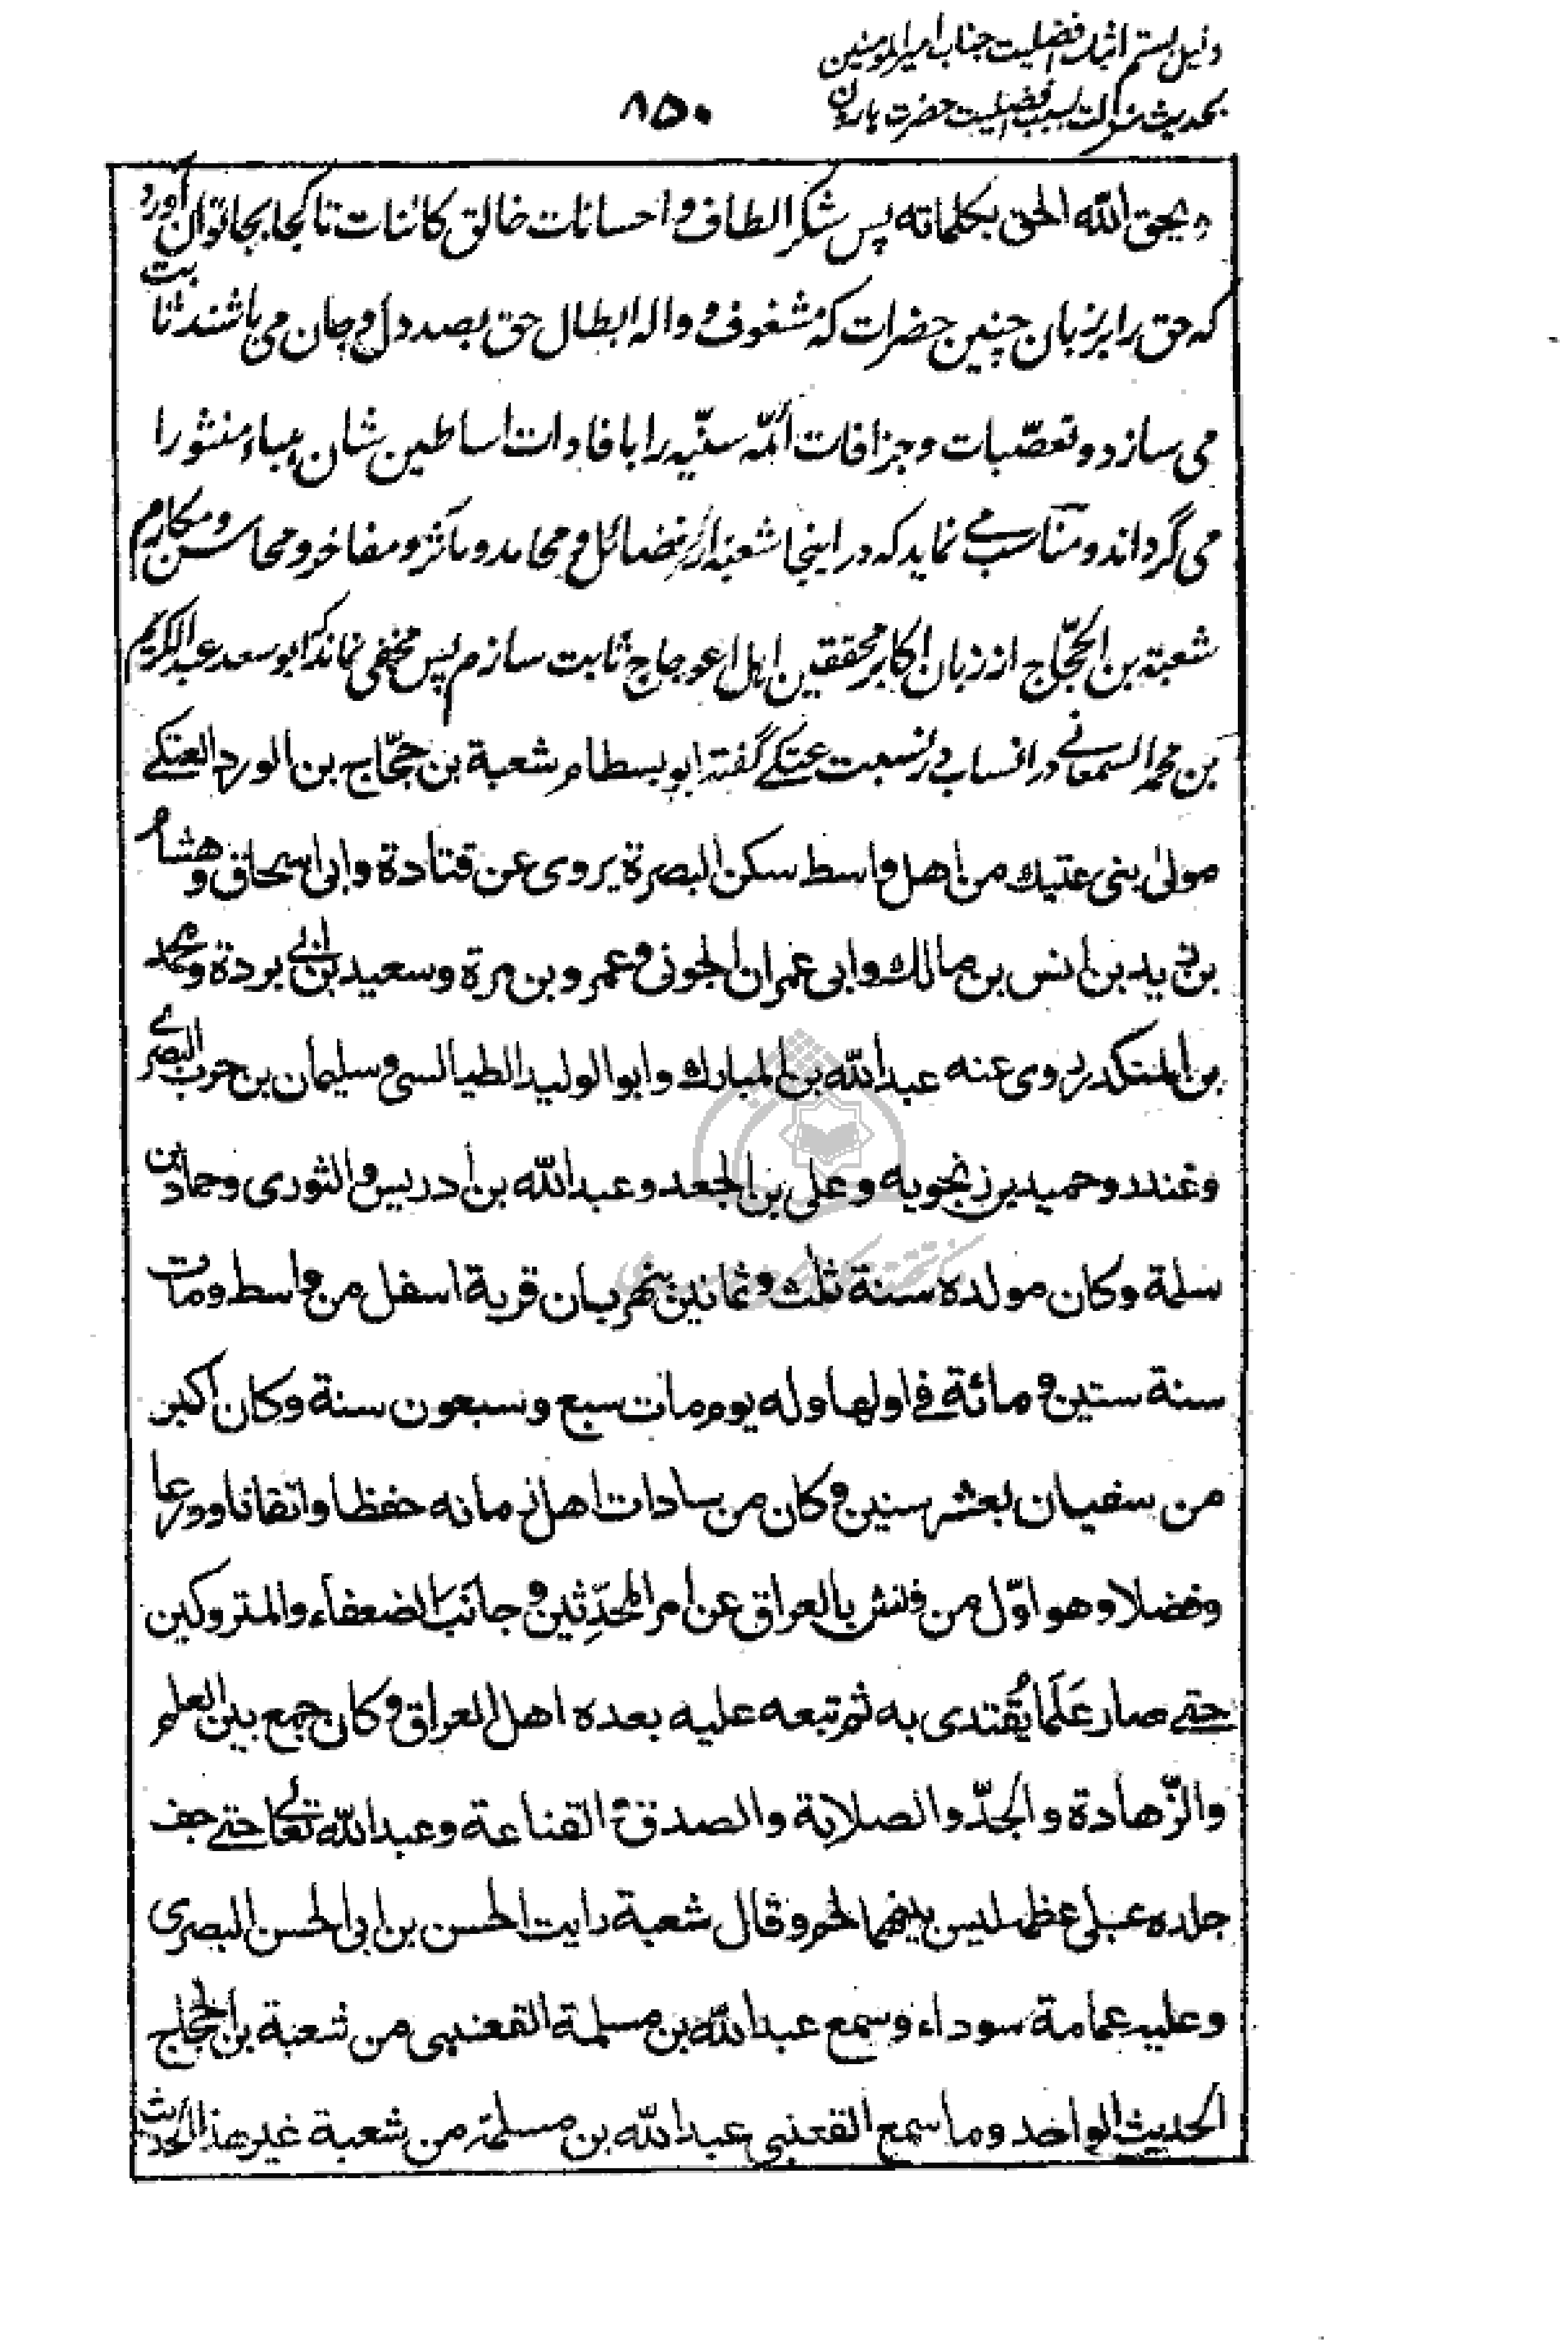 دلیل بستم اثبات افضلیت جناب امیرالمومنین
بحدیث منزلت بسبب افضلیت حضرت هارون
۸۵۰
ویحق الله الحق بکلماته پس شکر الطاف و احسانات خالق کائنات تا کجا بجا توان آورد
که حق را بر زبان چنین حضرات که مشغوف و واله ابطال حق بصد دل و جان می باشند ثابت
می سازد و تعصّبات و جزافات ائمّه سنّیه را بافادات اساطین شان هباء منثورا
می گرداند و مناسب می نماید که در اینجا شعبهٔ از فضائل و محامد و مآثر و مفاخر و محاسن و مکارم
شعبة بن الحجّاج از زبان اکابر محققین اهل اعوجاج ثابت سازم پس مخفی نماند که ابو سعد عبد الکریم
بن محمد السمعانی در انساب در نسبت عتکی گفته ابو بسطام شعبة بن حجّاج بن الورد العتکے
مولیٰ بنی عتیك من اهل واسط سکن البصرة یروی عن قتادة وابی اسحاق وهشام
بن زید بن انس بن مالك وابی عمران الجونی و عمرو بن مرة وسعید بن ابی بردة ومحمد
بن المنکدر روی عنه عبد الله بن المبارك وابو الولید الطیالسی وسلیمان بن حرب البصرے
وغندر وحمید بن زنجویه وعلی بن الجعد وعبد الله بن ادریس والثوری وحماد بن
سلمة وکان مولده سنة ثلث وثمانین بنهربان قریة اسفل من واسط ومات
سنة ستین ومائة فی اولها وله یوم مات سبع وسبعون سنة وکان اکبر
من سفیان بعشر سنین وکان من سادات اهل زمانه حفظا واتقانا وورعا
وفضلا وهو اوّل من فتش بالعراق عن امر المحدّثین وجانَبَ الضعفاء والمتروکین
حتے صار عَلَما یُقتدی به ثم تبعه علیه بعده اهل العراق وکان جمع بین العلم
والزّهادة والجدّ والصلابة والصدق والقناعة وعبد الله تعالی حتے جف
جلده علی عظمه لیس بینهما لحم وقال شعبة رایت الحسن بن ابی الحسن البصری
وعلیه عمامة سوداء وسمع عبد الله بن مسلمة القعنبی من شعبة بن الحجاج
الحدیث الواحد وما سمع القعنبی عبد الله بن مسلمة من شعبة غیر هذا الحدیث